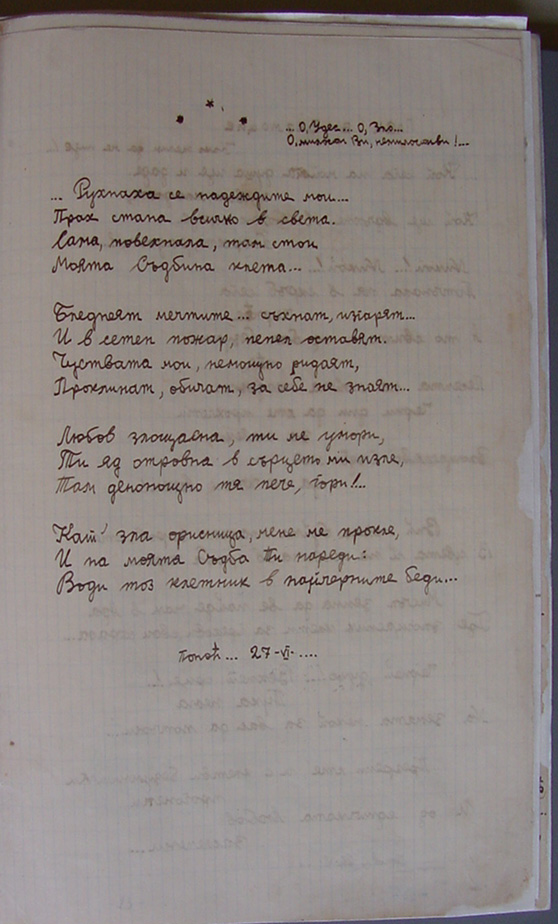 * * *
... О, Удес... О, Зло...
О, милост Ви, немилостиви!...
... Рухнаха се надеждите мои...
Прах стана всичко в света.
Сама, повехнала, там стои
Моята Съдбина клета...
Бледнеят мечтите... съхнат, изгарят...
И в сетен пожар, пепел оставят.
Чуствата мои, немощно ридаят,
Проклинат, обичат, за себе не знаят...
Любов злощастна, ти ме умори,
Ти яд отровна в сърцето ми изля,
Там денонощно тя пече, гори!...
Кат' зла орисница, мене ме прокле,
И на моята Съдба ти нареди:
Води тоз клетник в найчерните беди...
27-VI-....